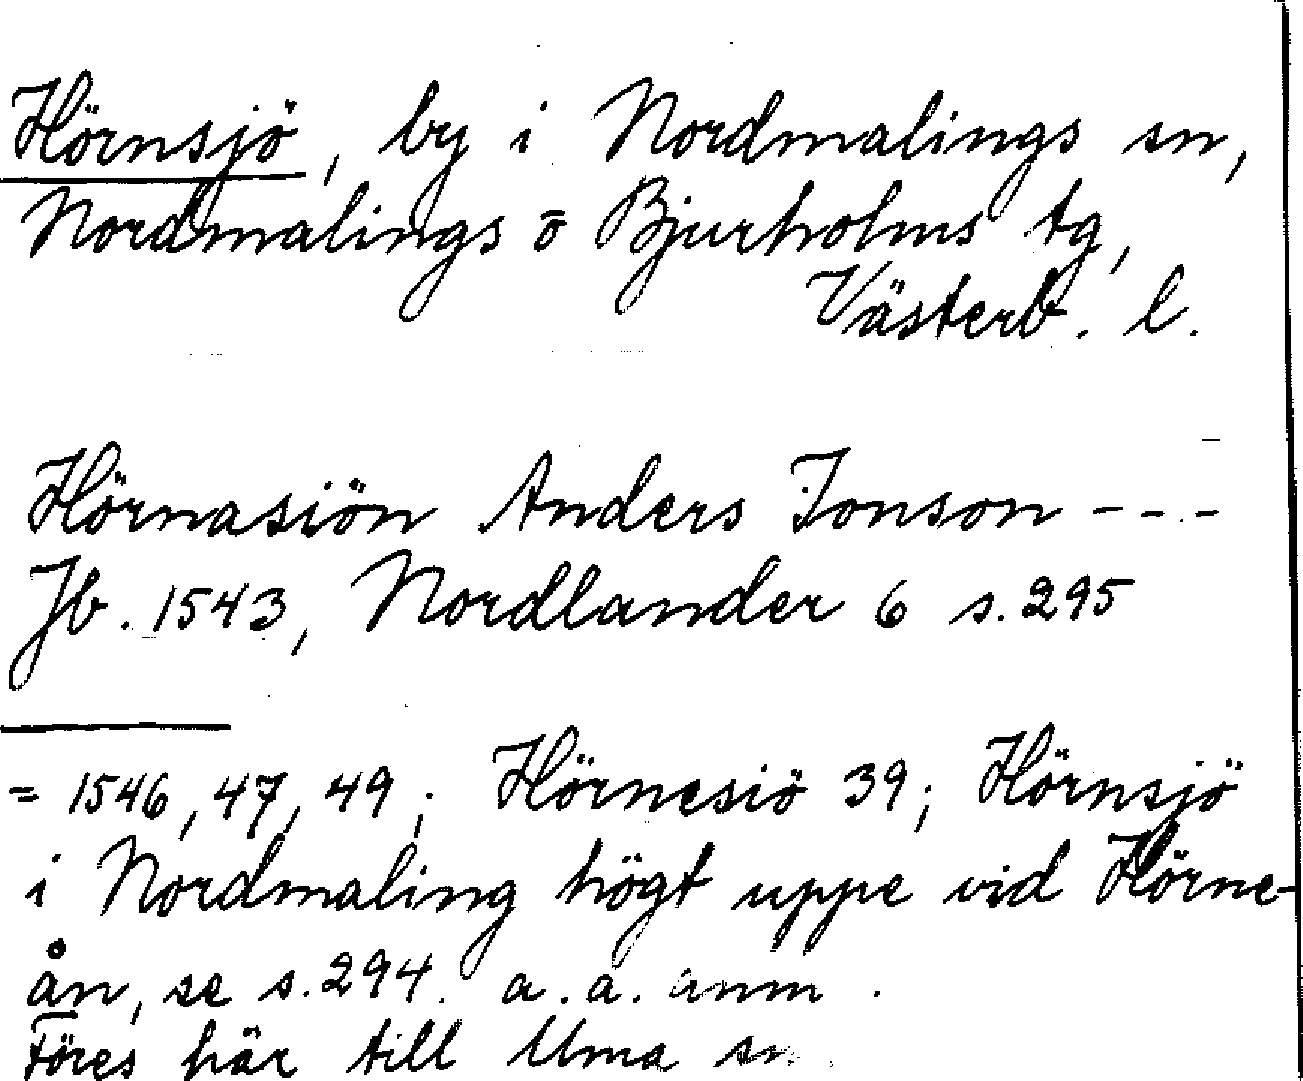 Hörnsjö, by i Nordmalings sn,
Nordmalings o Bjurholms tg,
Västerb. l.
Hörnasiön Anders Jonson ---
Jb. 1543, Nordlander 6 s. 295
= 1546, 47, 49; Hörnesiö 39; Hörnsjö
i Nordmaling högt uppe vid Hörne-
ån, se s. 294. a. a. anm.
Föres här till Uma sn.